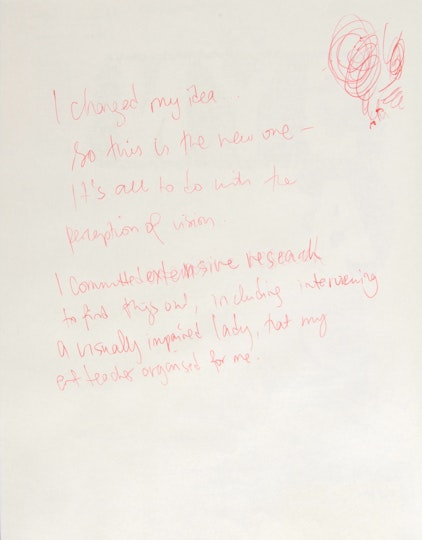 I changed my idea...
So this is the new one –
It's all to do with the
perception of vision.
I committed extensive research
to find things out, including interviewing
a visually impaired lady, that my
art teacher organised for me.